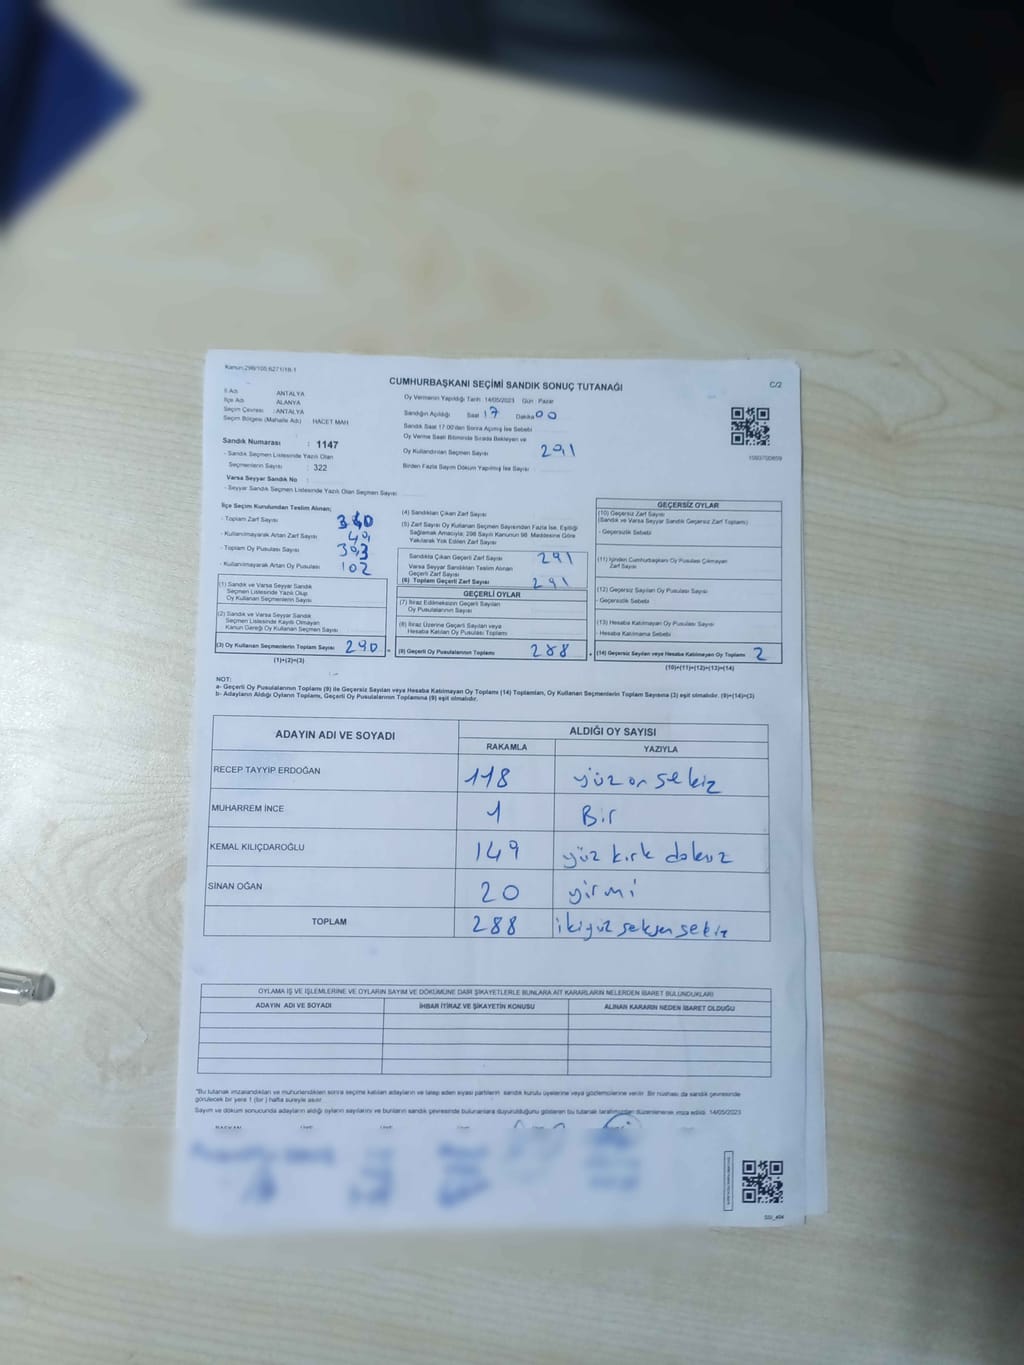 Kanun:298/105;6271/18-1
CUMHURBAŞKANI SEÇİMİ SANDIK SONUÇ TUTANAĞI
C/2
İl Adı : ANTALYA
İlçe Adı : ALANYA
Seçim Çevresi : ANTALYA
Seçim Bölgesi (Mahalle Adı) HACET MAH
Sandık Numarası : 1147
- Sandık Seçmen Listesinde Yazılı Olan
Seçmenlerin Sayısı : 322
Varsa Seyyar Sandık No :
- Seyyar Sandık Seçmen Listesinde Yazılı Olan Seçmen Sayısı
Oy Vermenin Yapıldığı Tarih : 14/05/2023 Gün : Pazar
Sandığın Açıldığı Saat 17 Dakika 00
Sandık Saat 17:00'den Sonra Açılmış İse Sebebi
Oy Verme Saati Bitiminde Sırada Bekleyen ve
Oy Kullandırılan Seçmen Sayısı 291
Birden Fazla Sayım Döküm Yapılmış İse Sayısı
İlçe Seçim Kurulundan Teslim Alınan;
- Toplam Zarf Sayısı
- Kullanılmayarak Artan Zarf Sayısı
- Toplam Oy Pusulası Sayısı 393
- Kullanılmayarak Artan Oy Pusulası 102
(1) Sandık ve Varsa Seyyar Sandık
Seçmen Listesinde Yazılı Olup
Oy Kullanan Seçmenlerin Sayısı
(2) Sandık ve Varsa Seyyar Sandık
Seçmen Listesinde Kayıtlı Olmayan
Kanun Gereği Oy Kullanan Seçmen Sayısı
(3) Oy Kullanan Seçmenlerin Toplam Sayısı 290
(1)+(2)=(3)
(4) Sandıktan Çıkan Zarf Sayısı
(5) Zarf Sayısı Oy Kullanan Seçmen Sayısından Fazla İse, Eşitliği
Sağlamak Amacıyla; 298 Sayılı Kanunun 98. Maddesine Göre
Yakılarak Yok Edilen Zarf Sayısı
Sandıkta Çıkan Geçerli Zarf Sayısı 291
Varsa Seyyar Sandıktan Teslim Alınan
Geçerli Zarf Sayısı
(6) Toplam Geçerli Zarf Sayısı 291
GEÇERLİ OYLAR
(7) İtiraz Edilmeksizin Geçerli Sayılan
Oy Pusulalarının Sayısı
(8) İtiraz Üzerine Geçerli Sayılan veya
Hesaba Katılan Oy Pusulası Toplamı
(9) Geçerli Oy Pusulalarının Toplamı 288
GEÇERSİZ OYLAR
(10) Geçersiz Zarf Sayısı
(Sandık ve Varsa Seyyar Sandık Geçersiz Zarf Toplamı)
- Geçersizlik Sebebi
(11) İçinden Cumhurbaşkanı Oy Pusulası Çıkmayan
Zarf Sayısı
(12) Geçersiz Sayılan Oy Pusulası Sayısı
- Geçersizlik Sebebi
(13) Hesaba Katılmayan Oy Pusulası Sayısı
- Hesaba Katılmama Sebebi
(14) Geçersiz Sayılan veya Hesaba Katılmayan Oy Toplamı 2
(10)+(11)+(12)+(13)=(14)
NOT:
a- Geçerli Oy Pusulalarının Toplamı (9) ile Geçersiz Sayılan veya Hesaba Katılmayan Oy Toplamı (14) Toplamları, Oy Kullanan Seçmenlerin Toplam Sayısına (3) eşit olmalıdır. (9)+(14)=(3)
b- Adayların Aldığı Oyların Toplamı, Geçerli Oy Pusulalarının Toplamına (9) eşit olmalıdır.
ADAYIN ADI VE SOYADI ALDIĞI OY SAYISI
RAKAMLA YAZIYLA
RECEP TAYYİP ERDOĞAN 118 yüz on sekiz
MUHARREM İNCE 1 Bir
KEMAL KILIÇDAROĞLU 149 yüz kırk dokuz
SİNAN OĞAN 20 yirmi
TOPLAM 288 ikiyüz seksen sekiz
OYLAMA İŞ VE İŞLEMLERİNE VE OYLARIN SAYIM VE DÖKÜMÜNE DAİR ŞİKAYETLERLE BUNLARA AİT KARARLARIN NELERDEN İBARET BULUNDUKLARI
ADAYIN ADI VE SOYADI İHBAR İTİRAZ VE ŞİKAYETİN KONUSU ALINAN KARARIN NEDEN İBARET OLDUĞU
*Bu tutanak imzalandıktan ve mühürlendikten sonra seçime katılan adayların ve talep eden siyasi partilerin sandık kurulu üyelerine/veya gözlemcilerine verilir. Bir nüshası da sandık çevresinde
görülecek bir yere 1 (bir) hafta süreyle asılır.
Sayım ve döküm sonucunda adayların aldığı oyların sayılarını ve bunların sandık çevresinde bulunanlara duyurulduğunu gösteren bu tutanak tarafımızdan düzenlenerek imza edildi. 14/05/2023